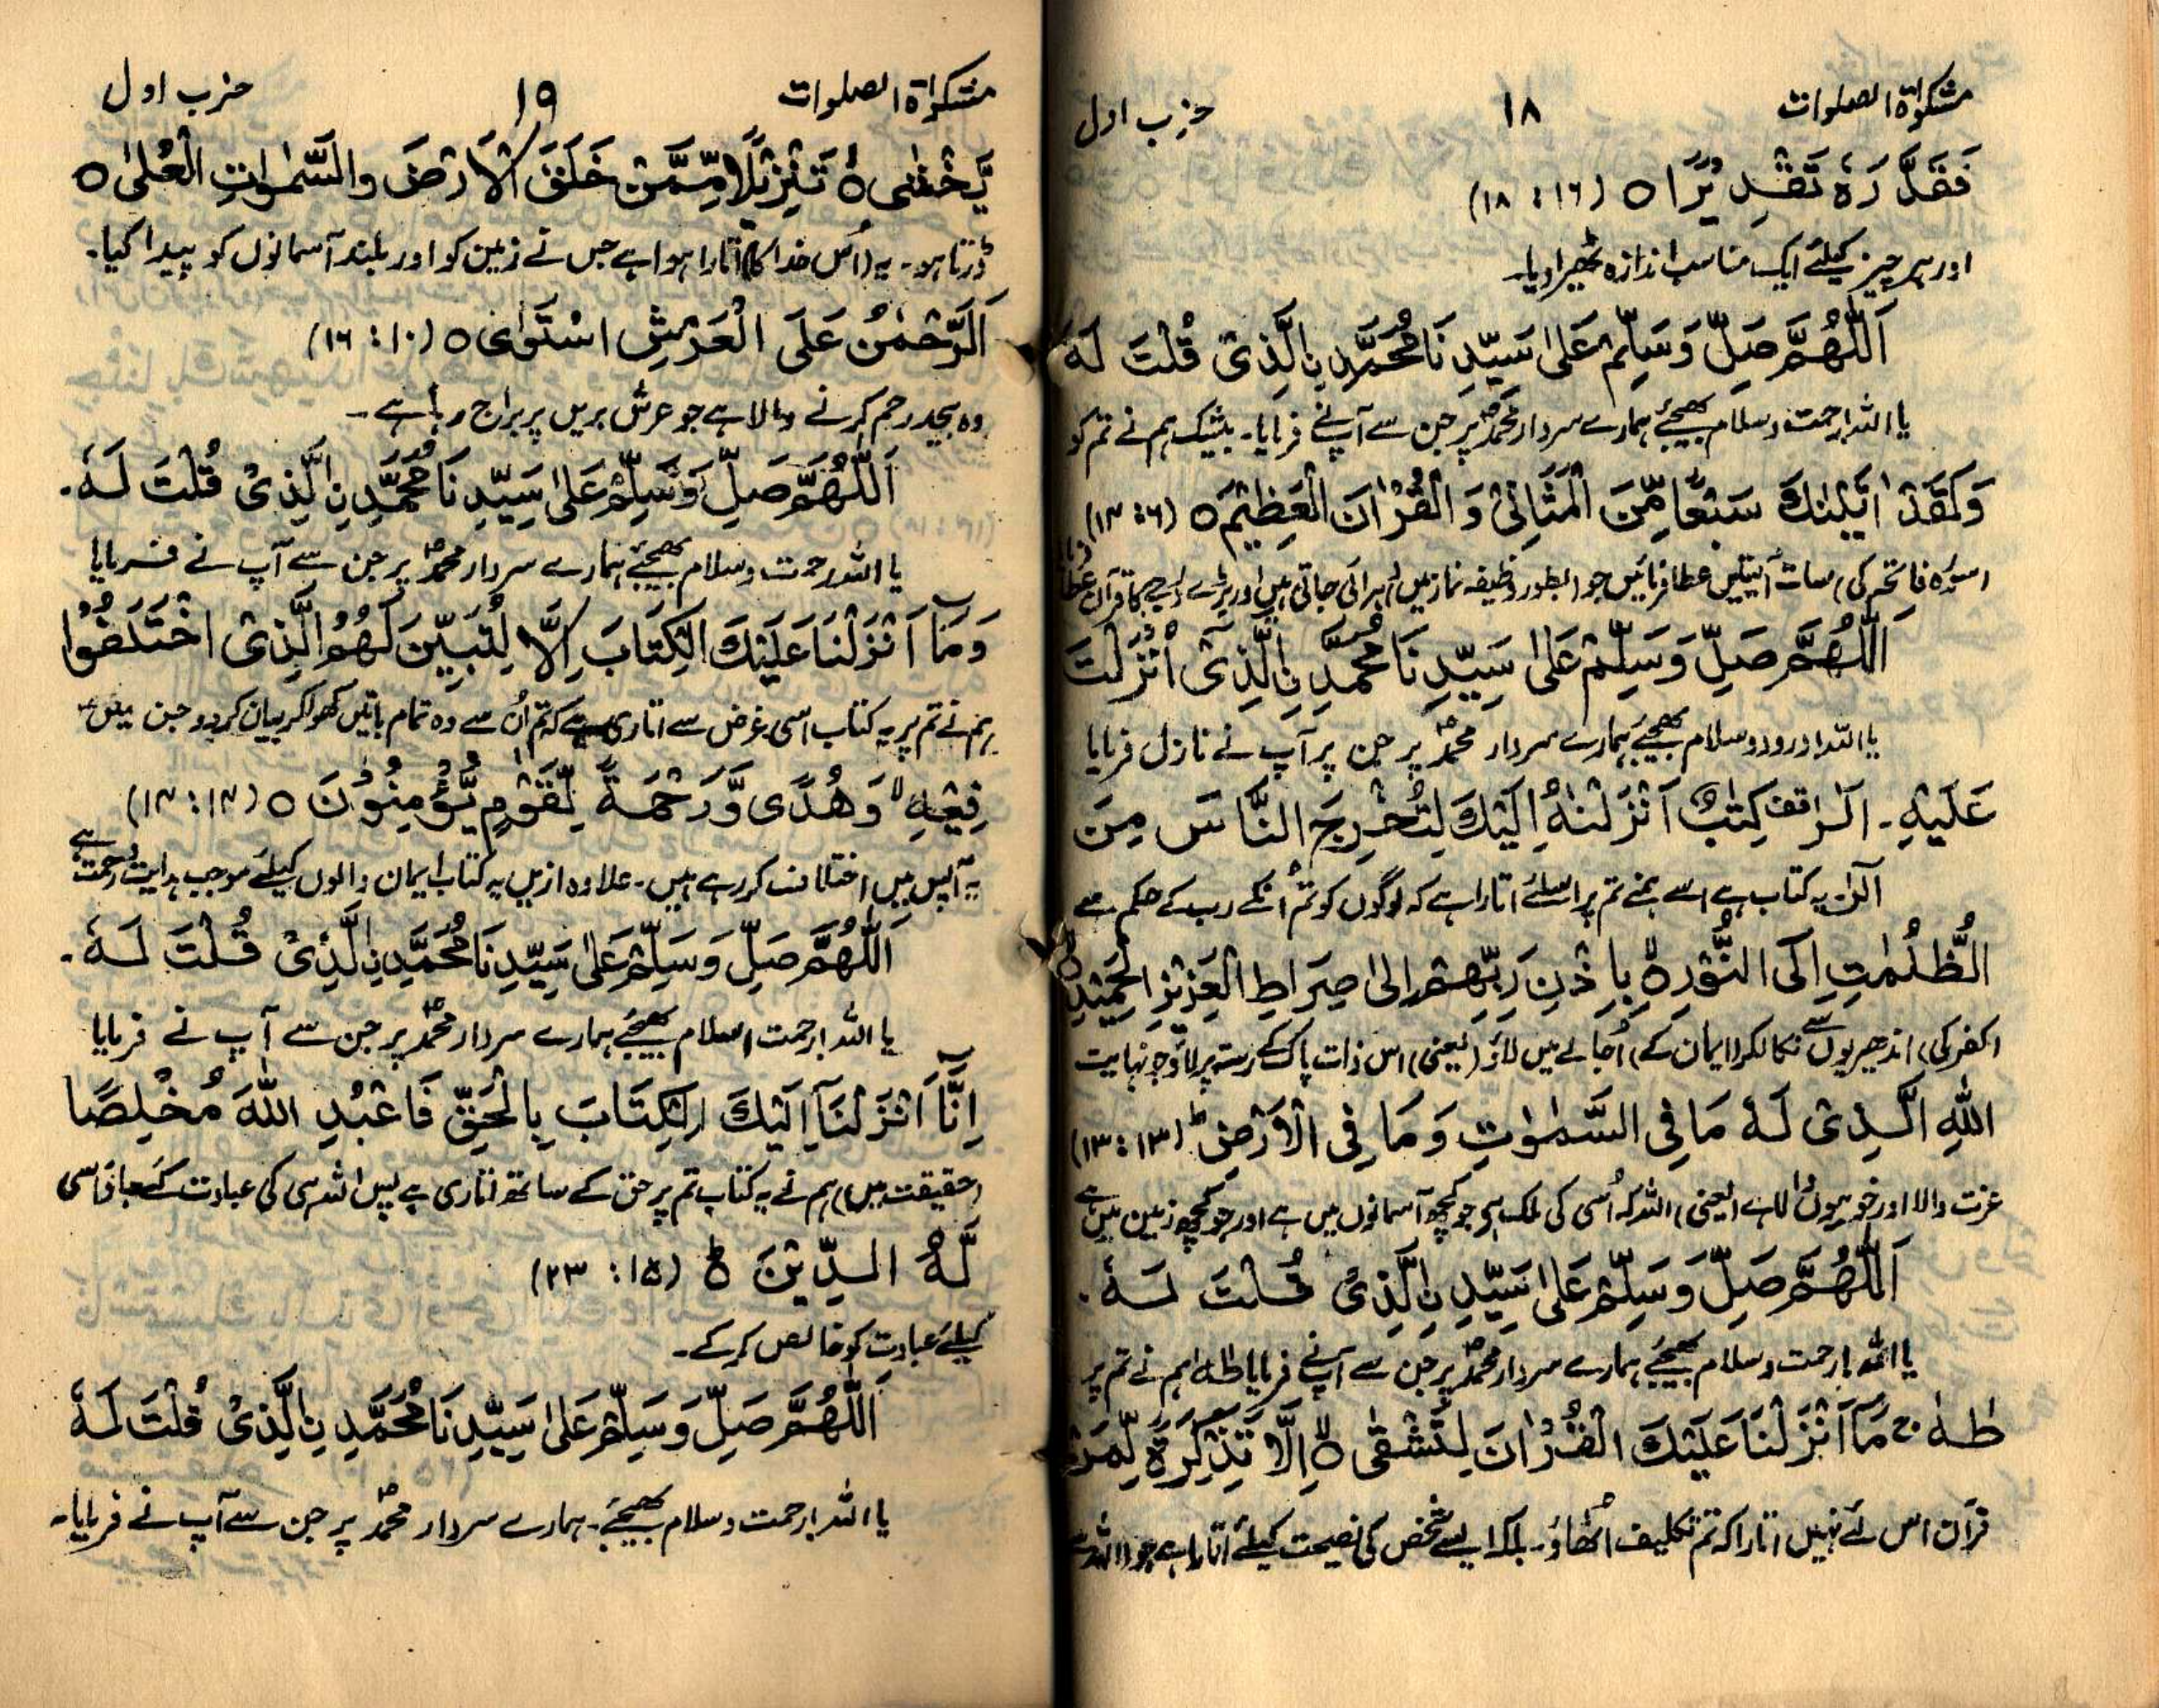 مشکوٰۃ الصلوات ۱۸ حزب اول
فَقَدَّرَہٗ تَقْدِیْرًا ٥ (۱۶ : ۱۸)
اور ہر چیز کیلئے ایک مناسب اندازہ ٹھیرا دیا۔
اَللّٰھُمَّ صَلِّ وَسَلِّمْ عَلٰی سَیِّدِنَا مُحَمَّدِ نِ الَّذِیْ قُلْتَ لَہٗ
یا اللہ! رحمت و سلام بھیجئے ہمارے سردار محمدؐ پر جن سے آپ نے فرمایا۔ بیشک ہم نے تم کو
وَلَقَدْ اٰتَیْنٰکَ سَبْعًا مِّنَ الْمَثَانِیْ وَ الْقُرْاٰنَ الْعَظِیْمَ ٥ (۱۴:۶)
(سورہ فاتحہ کی) سات آیتیں عطا فرمائیں جو (بطور وظیفہ نماز میں) دہرائی جاتی ہیں اور بڑے درجے کا قرآن عطا فرمایا
اَللّٰھُمَّ صَلِّ وَسَلِّمْ عَلٰی سَیِّدِنَا مُحَمَّدِ نِ الَّذِیْٓ اَنْزَلْتَ
یا اللہ! درود و سلام بھیجئے ہمارے سردار محمدؐ پر جن پر آپ نے نازل فرمایا
عَلَیْہِ۔ الٓرٰ قف کِتٰبٌ اَنْزَلْنٰہُ اِلَیْکَ لِتُخْرِجَ النَّاسَ مِنَ
الٓرٰ۔ یہ کتاب ہے اسے ہمنے تم پر اسلئے اتارا ہے کہ لوگوں کو تم اُنکے رب کے حکم سے
الظُّلُمٰتِ اِلَی النُّوْرِ ٥ۙ بِاِذْنِ رَبِّھِمْ اِلٰی صِرَاطِ الْعَزِیْزِ الْحَمِیْدِ ٥ۙ
(کفر کی) اندھیریوں سے نکالکر (ایمان کے) اُجالے میں لاؤ (یعنی) اس ذات پاک کے رستہ پر لاؤ جو نہایت
اللّٰہِ الَّذِیْ لَہٗ مَا فِی السَّمٰوٰتِ وَ مَا فِی الْاَرْضِ ؕ (۱۳:۱۳)
عزت والا اور خوبیوں والا ہے (یعنی) اللہ کہ اُسی کی ملک ہے جو کچھ آسمانوں میں ہے اور جو کچھ زمین میں ہے
اَللّٰھُمَّ صَلِّ وَسَلِّمْ عَلٰی سَیِّدِ نِ الَّذِیْ قُلْتَ لَہٗ۔
یا اللہ! رحمت و سلام بھیجئے ہمارے سردار محمدؐ پر جن سے آپ نے فرمایا طٰہٰ! ہم نے تم پر
طٰہٰ ۚ مَآ اَنْزَلْنَا عَلَیْکَ الْقُرْاٰنَ لِتَشْقٰی ٥ۙ اِلَّا تَذْکِرَۃً لِّمَنْ
قرآن اس لئے نہیں اتارا کہ تم تکلیف اُٹھاؤ۔ بلکہ ایسے شخص کی نصیحت کیلئے اتارا ہے جو (اللہ سے)
مشکوٰۃ الصلوات ۱۹ حزب اول
یَّخْشٰی ٥ۙ تَنْزِیْلًا مِّمَّنْ خَلَقَ الْاَرْضَ وَالسَّمٰوٰتِ الْعُلٰی ٥
ڈرتا ہو۔ یہ (اُس خدا کا) اتارا ہوا ہے جس نے زمین کو اور بلند آسمانوں کو پیدا کیا۔
اَلرَّحْمٰنُ عَلَی الْعَرْشِ اسْتَوٰی ٥ (۱۰ : ۱۶)
وہ بیحد رحم کرنے والا ہے جو عرش بریں پر براج رہا ہے۔
اَللّٰھُمَّ صَلِّ وَسَلِّمْ عَلٰی سَیِّدِنَا مُحَمَّدِ نِ الَّذِیْ قُلْتَ لَہٗ۔
یا اللہ! رحمت و سلام بھیجئے ہمارے سردار محمدؐ پر جن سے آپ نے فرمایا
وَمَآ اَنْزَلْنَا عَلَیْکَ الْکِتَابَ اِلَّا لِتُبَیِّنَ لَھُمُ الَّذِی اخْتَلَفُوْا
ہم نے تم پر یہ کتاب اسی غرض سے اتاری ہے کہ تم اُن سے وہ تمام باتیں کھولکر بیان کر دو جن میں
فِیْہِ ۙ وَھُدًی وَّرَحْمَۃً لِّقَوْمٍ یُّؤْمِنُوْنَ ٥ (۱۴:۱۴)
یہ آپس میں اختلاف کر رہے ہیں۔ علاوہ ازیں یہ کتاب ایمان والوں کیلئے موجب ہدایت و رحمت ہے
اَللّٰھُمَّ صَلِّ وَسَلِّمْ عَلٰی سَیِّدِنَا مُحَمَّدِ نِ الَّذِیْ قُلْتَ لَہٗ۔
یا اللہ! رحمت و سلام بھیجئے ہمارے سردار محمدؐ پر جن سے آپ نے فرمایا
اِنَّآ اَنْزَلْنَآ اِلَیْکَ الْکِتَابَ بِالْحَقِّ فَاعْبُدِ اللّٰہَ مُخْلِصًا
(حقیقت میں) ہم نے یہ کتاب تم پر حق کے ساتھ اتاری ہے پس اللہ ہی کی عبادت کئے جاؤ اسی
لَّہُ الدِّیْنَ ؕ (۱۵ : ۲۳)
کیلئے عبادت کو خالص کر کے۔
اَللّٰھُمَّ صَلِّ وَسَلِّمْ عَلٰی سَیِّدِنَا مُحَمَّدِ نِ الَّذِیْ قُلْتَ لَہٗ
یا اللہ! رحمت و سلام بھیجئے۔ ہمارے سردار محمدؐ پر جن سے آپ نے فرمایا۔